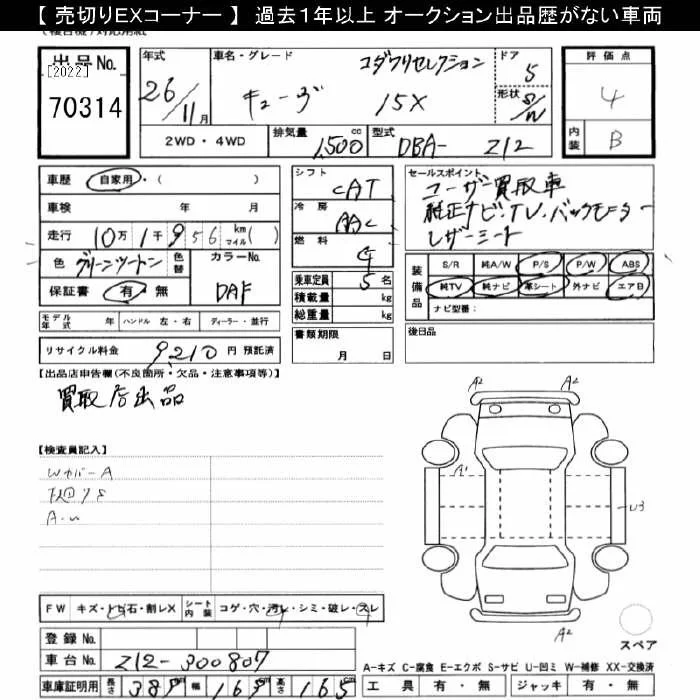 【 売切りEXコーナー 】 過去１年以上 オークション出品歴がない車両
出品No.
[2022]
70314
年式
26/11月
車名・グレード
コダワリセレクション
キューブ 15X
ドア
5
形状
S/W
評価点
4
内装
B
2WD・4WD
排気量
1500cc
型式
DBA- Z12
車歴
自家用・( )
車検 年 月
走行 10万1千956 km マイル( )
色 グリーンツートン
色替
カラーNo.
DAF
保証書 有・無
シフト
CAT
冷房
AAC
燃料
乗車定員 5名
積載量 kg
総重量 kg
書類期限
月 日
セールスポイント
ユーザー買取車
純正ナビ・TV・バックモニター
レザーシート
装備品
S/R 純A/W P/S P/W ABS
純TV 純ナビ 革シート 外ナビ エアB
ナビ型番:
後日品
モデル年式 年 ハンドル 左・右 ディーラー・並行
リサイクル料金 9210円 預託済
【出品店申告欄(不良箇所・欠品・注意事項等)】
買取店出品
【検査員記入】
WカバーA
下廻りS
A・U
A2 A2
A1
U3
A2
スペア
FW キズ・トビ石・割レX
シート内装 コゲ・穴・汚レ・シミ・破レ・スレ
登録No.
車台No. Z12-300807
車庫証明用 長さ 389 幅 169 高さ 165
A-キズ C-腐食 E-エクボ S-サビ U-凹ミ W-補修 XX-交換済
工具 有・無 ジャッキ 有・無